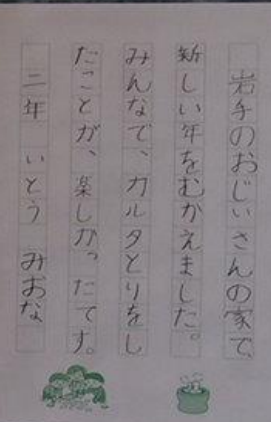 岩手のおじいさんの家で、
新しい年をむかえました。
みんなで、カルタとりをし
たことが、楽しかったです。
二年 いとう みおな